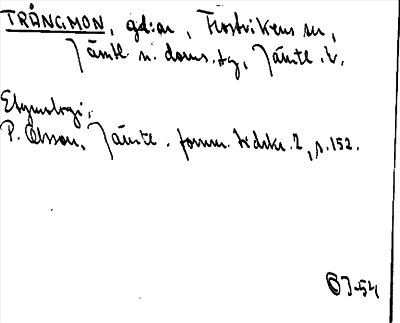 TRÅNGMON, gd:ar, Frostvikens sn,
Jämtl. n. doms. tg, Jämtl. l.
Etymologi:
P. Olsson, Jämtl. fornm. tidskr. 2, s. 152.
BJ-54